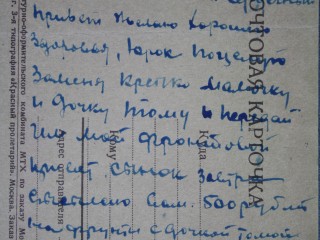 Привет Желаю хорошего
Здоровья, Юрок Поцелуй
за меня крепко мамочку
и дочку Тому и передай
им мой фронтовой
привет сынок завтра
высылаю вам 600 рублей
на фрукты с дочкой Томой
ПОЧТОВАЯ КАРТОЧКА
Куда
Кому
Адрес отправителя
комбината МТХ по заказу
г. 3-я типография «Красный пролетарий», Москва. Заказ